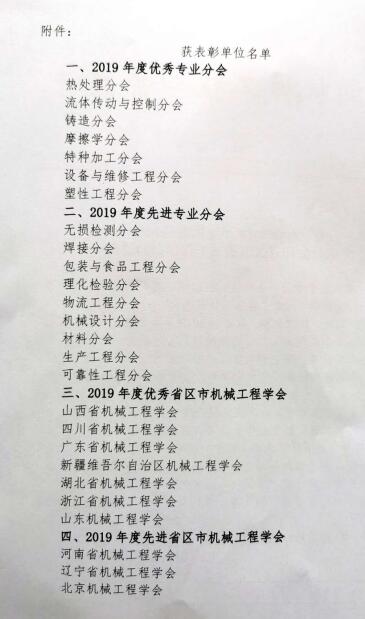 附件：
获表彰单位名单
一、2019 年度优秀专业分会
热处理分会
流体传动与控制分会
铸造分会
摩擦学分会
特种加工分会
设备与维修工程分会
塑性工程分会
二、2019 年度先进专业分会
无损检测分会
焊接分会
包装与食品工程分会
理化检验分会
物流工程分会
机械设计分会
材料分会
生产工程分会
可靠性工程分会
三、2019 年度优秀省区市机械工程学会
山西省机械工程学会
四川省机械工程学会
广东省机械工程学会
新疆维吾尔自治区机械工程学会
湖北省机械工程学会
浙江省机械工程学会
山东机械工程学会
四、2019 年度先进省区市机械工程学会
河南省机械工程学会
辽宁省机械工程学会
北京机械工程学会